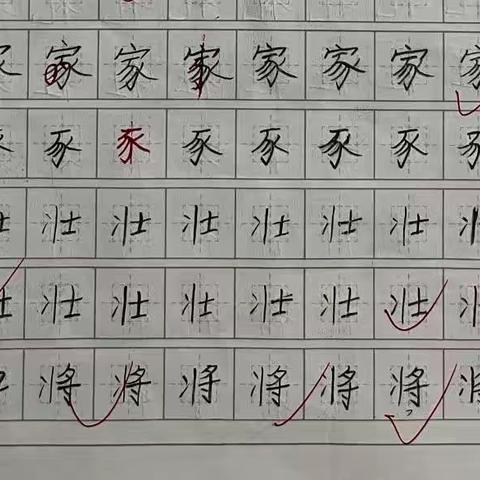 家 家 家 家 家 家 家 家
豕 豕 豕 豕 豕 豕 豕 豕
壮 壮 壮 壮 壮 壮 壮 壮
壮 壮 壮 壮 壮 壮 壮 壮
将 将 将 将 将 将